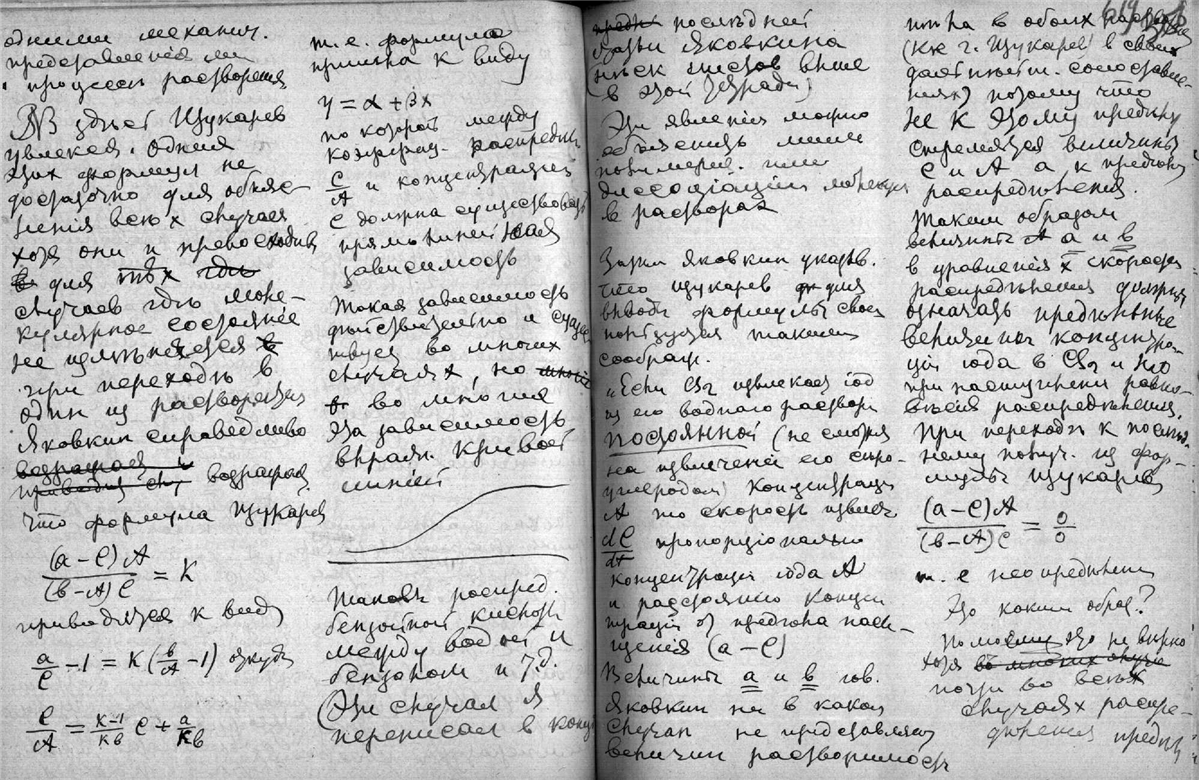 одними механич.
представленіями
процесс растворенія
В здѣсь Щукарев
увлекся. Одних
этих формул не
достаточно для объяс-
ненія всѣх случаев
хотя они и превосходны
для тѣх гдѣ
случаев гдѣ моле-
кулярное состояніе
не измѣняется
при переходѣ в
один из растворителей
Яковкин справедливо
возражая и
приводит ему возражая
что формула Щукарева
(a-C)A / (b-A)C = K
приводится к виду
a/C - 1 = K(b/A - 1) откуда
C/A = K-1/Kb C + a/Kb
т. е. формула
прямая к виду
y = α + βx
по которой между
коэффиц. распредѣл
C/A и концентраціей
C должна существовать
прямолинейная
зависимость
Такая зависимость
дѣйствительно и сущес
твует во многих
случаях, но многіе
в во многих
эта зависимость
выраж. кривой
линіей
Таковъ распред.
бензойной кислоты
между водой и
бензолом и т.д.
(Эти случаи я
переписал в концѣ
предъ послѣдней
Яковкина
(нѣск листов выше
в этой тетради)
Эти явленія можно
объяснить лишь
полимериз. или
диссоціаціей молекул
в растворах
Затѣм Яковкин указыв.
что Щукарев для
вывода формулы своей
пользуется таким
соображ.
„Если CS2 извлекает іод
из его воднаго раствора
постоянной (не смотря
на извлеченіе его серо-
углеродом) концентраціи
A то скорость извлеч
dC/dt пропорціональна
концентраціи іода A
и разстоянію концен
траціи от предѣла насы-
щенія (a-C)
Величины a и b гов.
Яковкин ни в каком
случаѣ не представляют
величин растворимость
619
іода в обоих растворит
(как г. Щукарев) в своих
потому что
не к этому предѣлу
стремятся величины
C и A а к предѣлу
распредѣленія.
Таким образом
величины A a и b
в уравненіях скорости
распредѣленія должны
означать предѣльные
величины концентра
ціи іода в CS2 и H2O
при наступленіи равно-
вѣсія распредѣленія.
При переходѣ к послѣд-
нему получ. из фор-
мулы Щукарева
(a-C)A / (b-A)C = 0/0
т. е неопредѣлен
Это каким образ?
По моему это не вѣрно
хотя во многих случа
почти во всѣх
случаях распре-
дѣленія предѣл